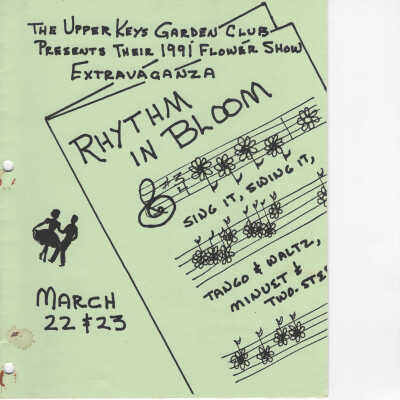 The Upper Keys Garden Club
Presents Their 1991 Flower Show
Extravaganza
RHYTHM
IN BLOOM
3/4
SING IT, SWING IT,
TANGO & WALTZ,
MINUET &
TWO-STE
MARCH
22 & 23